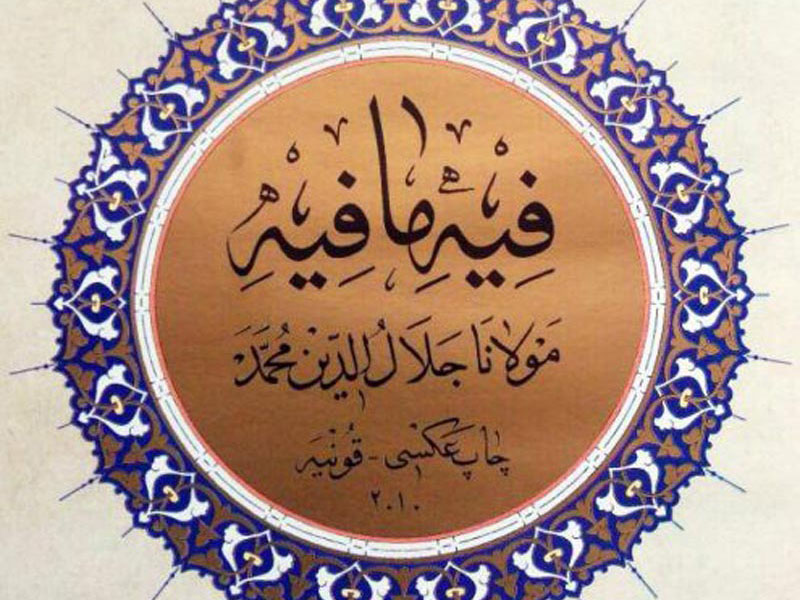 فِيْهِ مَا فِيْهِ
مَوْلَانَا جَلَالُ الدِّيْن مُحَمَّدْ
چاپ عَكسْى - قُونْيَه
۲۰۱۰